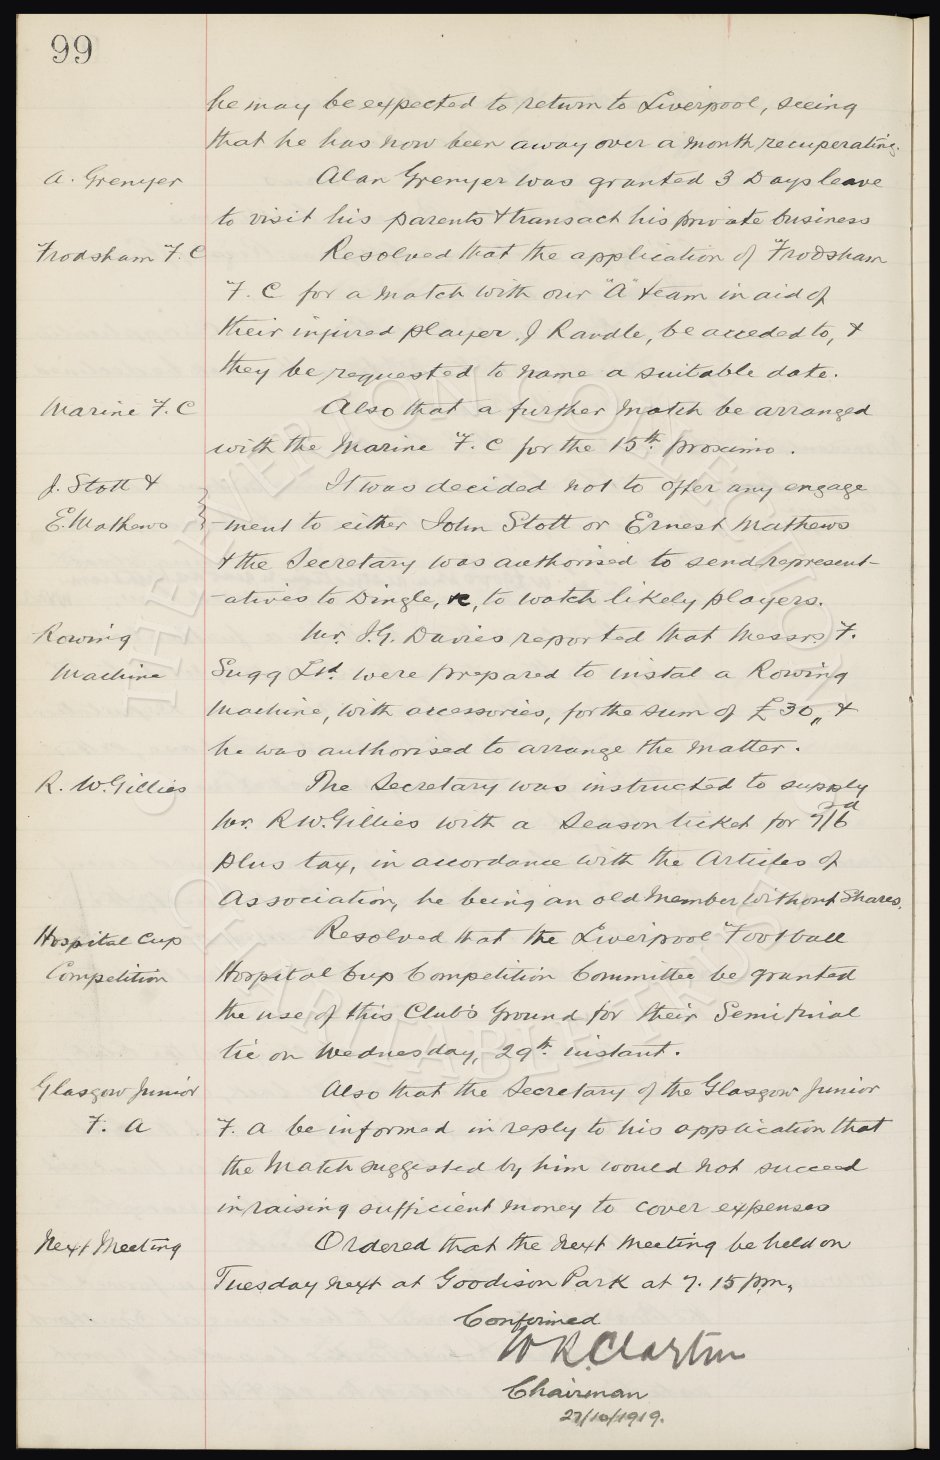 99
he may be expected to return to Liverpool, seeing
that he has now been away over a month recuperating.
A. Grenyer
Alan Grenyer was granted 3 Days leave
to visit his parents & transact his private business
Frodsham F. C
Resolved that the application of Frodsham
F. C for a match with our "A" team in aid of
their injured player, J Randle, be acceded to, &
they be requested to name a suitable date.
Marine F. C
Also that a further match be arranged
with the Marine F. C for the 15th proximo.
J. Stott &
It was decided not to offer any engage
E. Mathews
-ment to either John Stott or Ernest Mathews
& the Secretary was authorised to send represent-
-atives to Dingle, &c, to watch likely players.
Rowing
Mr. J.G. Davies reported that Messrs F.
Machine
Sugg Ltd. were prepared to instal a Rowing
Machine, with accessories, for the sum of £30,, &
he was authorised to arrange the matter.
R. W. Gillies
The Secretary was instructed to supply
Mr. R W. Gillies with a Season ticket for 7/6d
plus tax, in accordance with the Articles of
Association, he being an old Member without Shares.
Hospital Cup
Resolved that the Liverpool Football
Competition
Hospital Cup Competition Committee be granted
the use of this Club's Ground for their Semi final
tie on Wednesday, 29th instant.
Glasgow Junior
Also that the Secretary of the Glasgow Junior
F. A
F. A be informed in reply to his application that
the Match suggested by him would not succeed
in raising sufficient money to cover expenses
Next Meeting
Ordered that the next meeting be held on
Tuesday next at Goodison Park at 7. 15 pm.
Confirmed
W R Clayton
Chairman
27/10/1919.
THE EVERTON COLLECTION
CHARITABLE TRUST